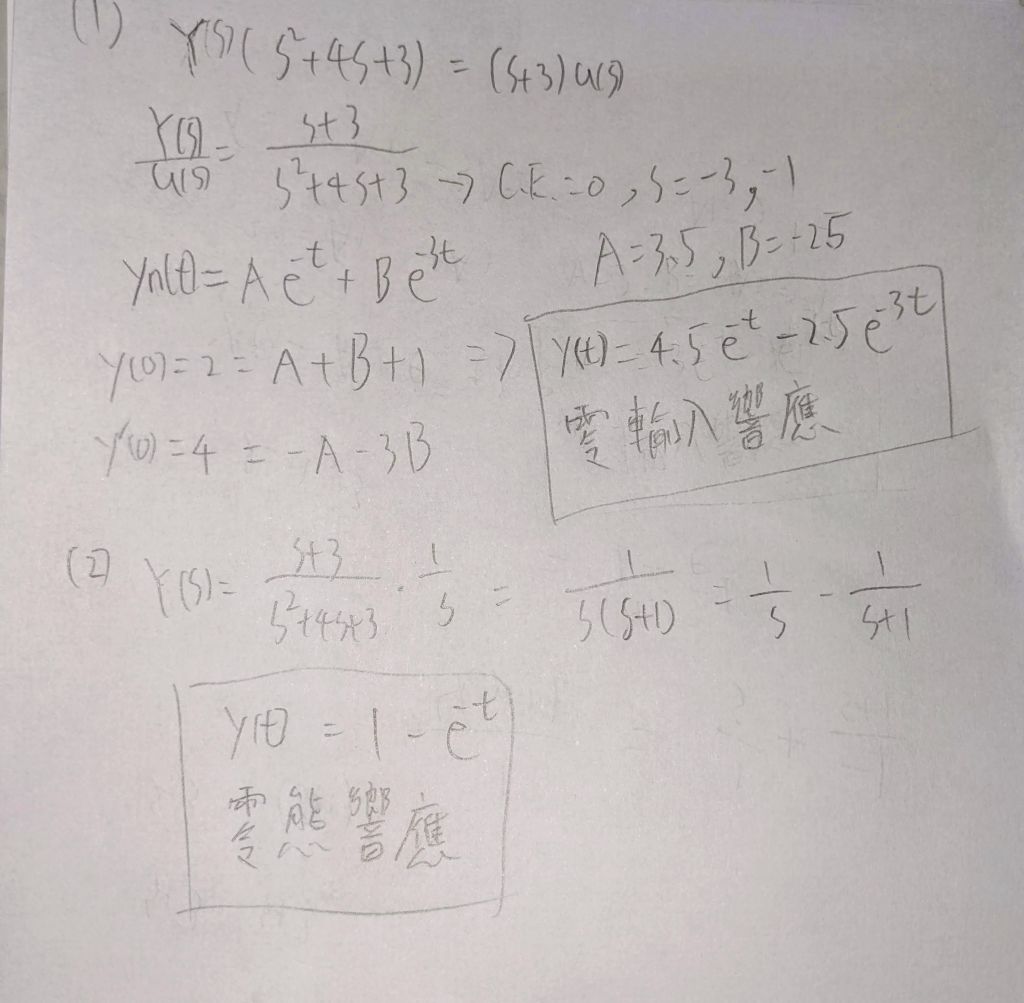 (1) Y(s)(s²+4s+3) = (s+3)u(s)
Y(s)/u(s) = s+3/s²+4s+3 → C.E.=0, s=-3,-1
yn(t) = Ae^-t + Be^-3t A=3.5, B=-2.5
y(0)=2=A+B+1 => y(t)=4.5e^-t-2.5e^-3t
y'(0)=4=-A-3B 零輸入響應
(2) Y(s)= s+3/s²+4s+3 · 1/s = 1/s(s+1) = 1/s - 1/s+1
y(t) = 1 - e^-t
零態響應